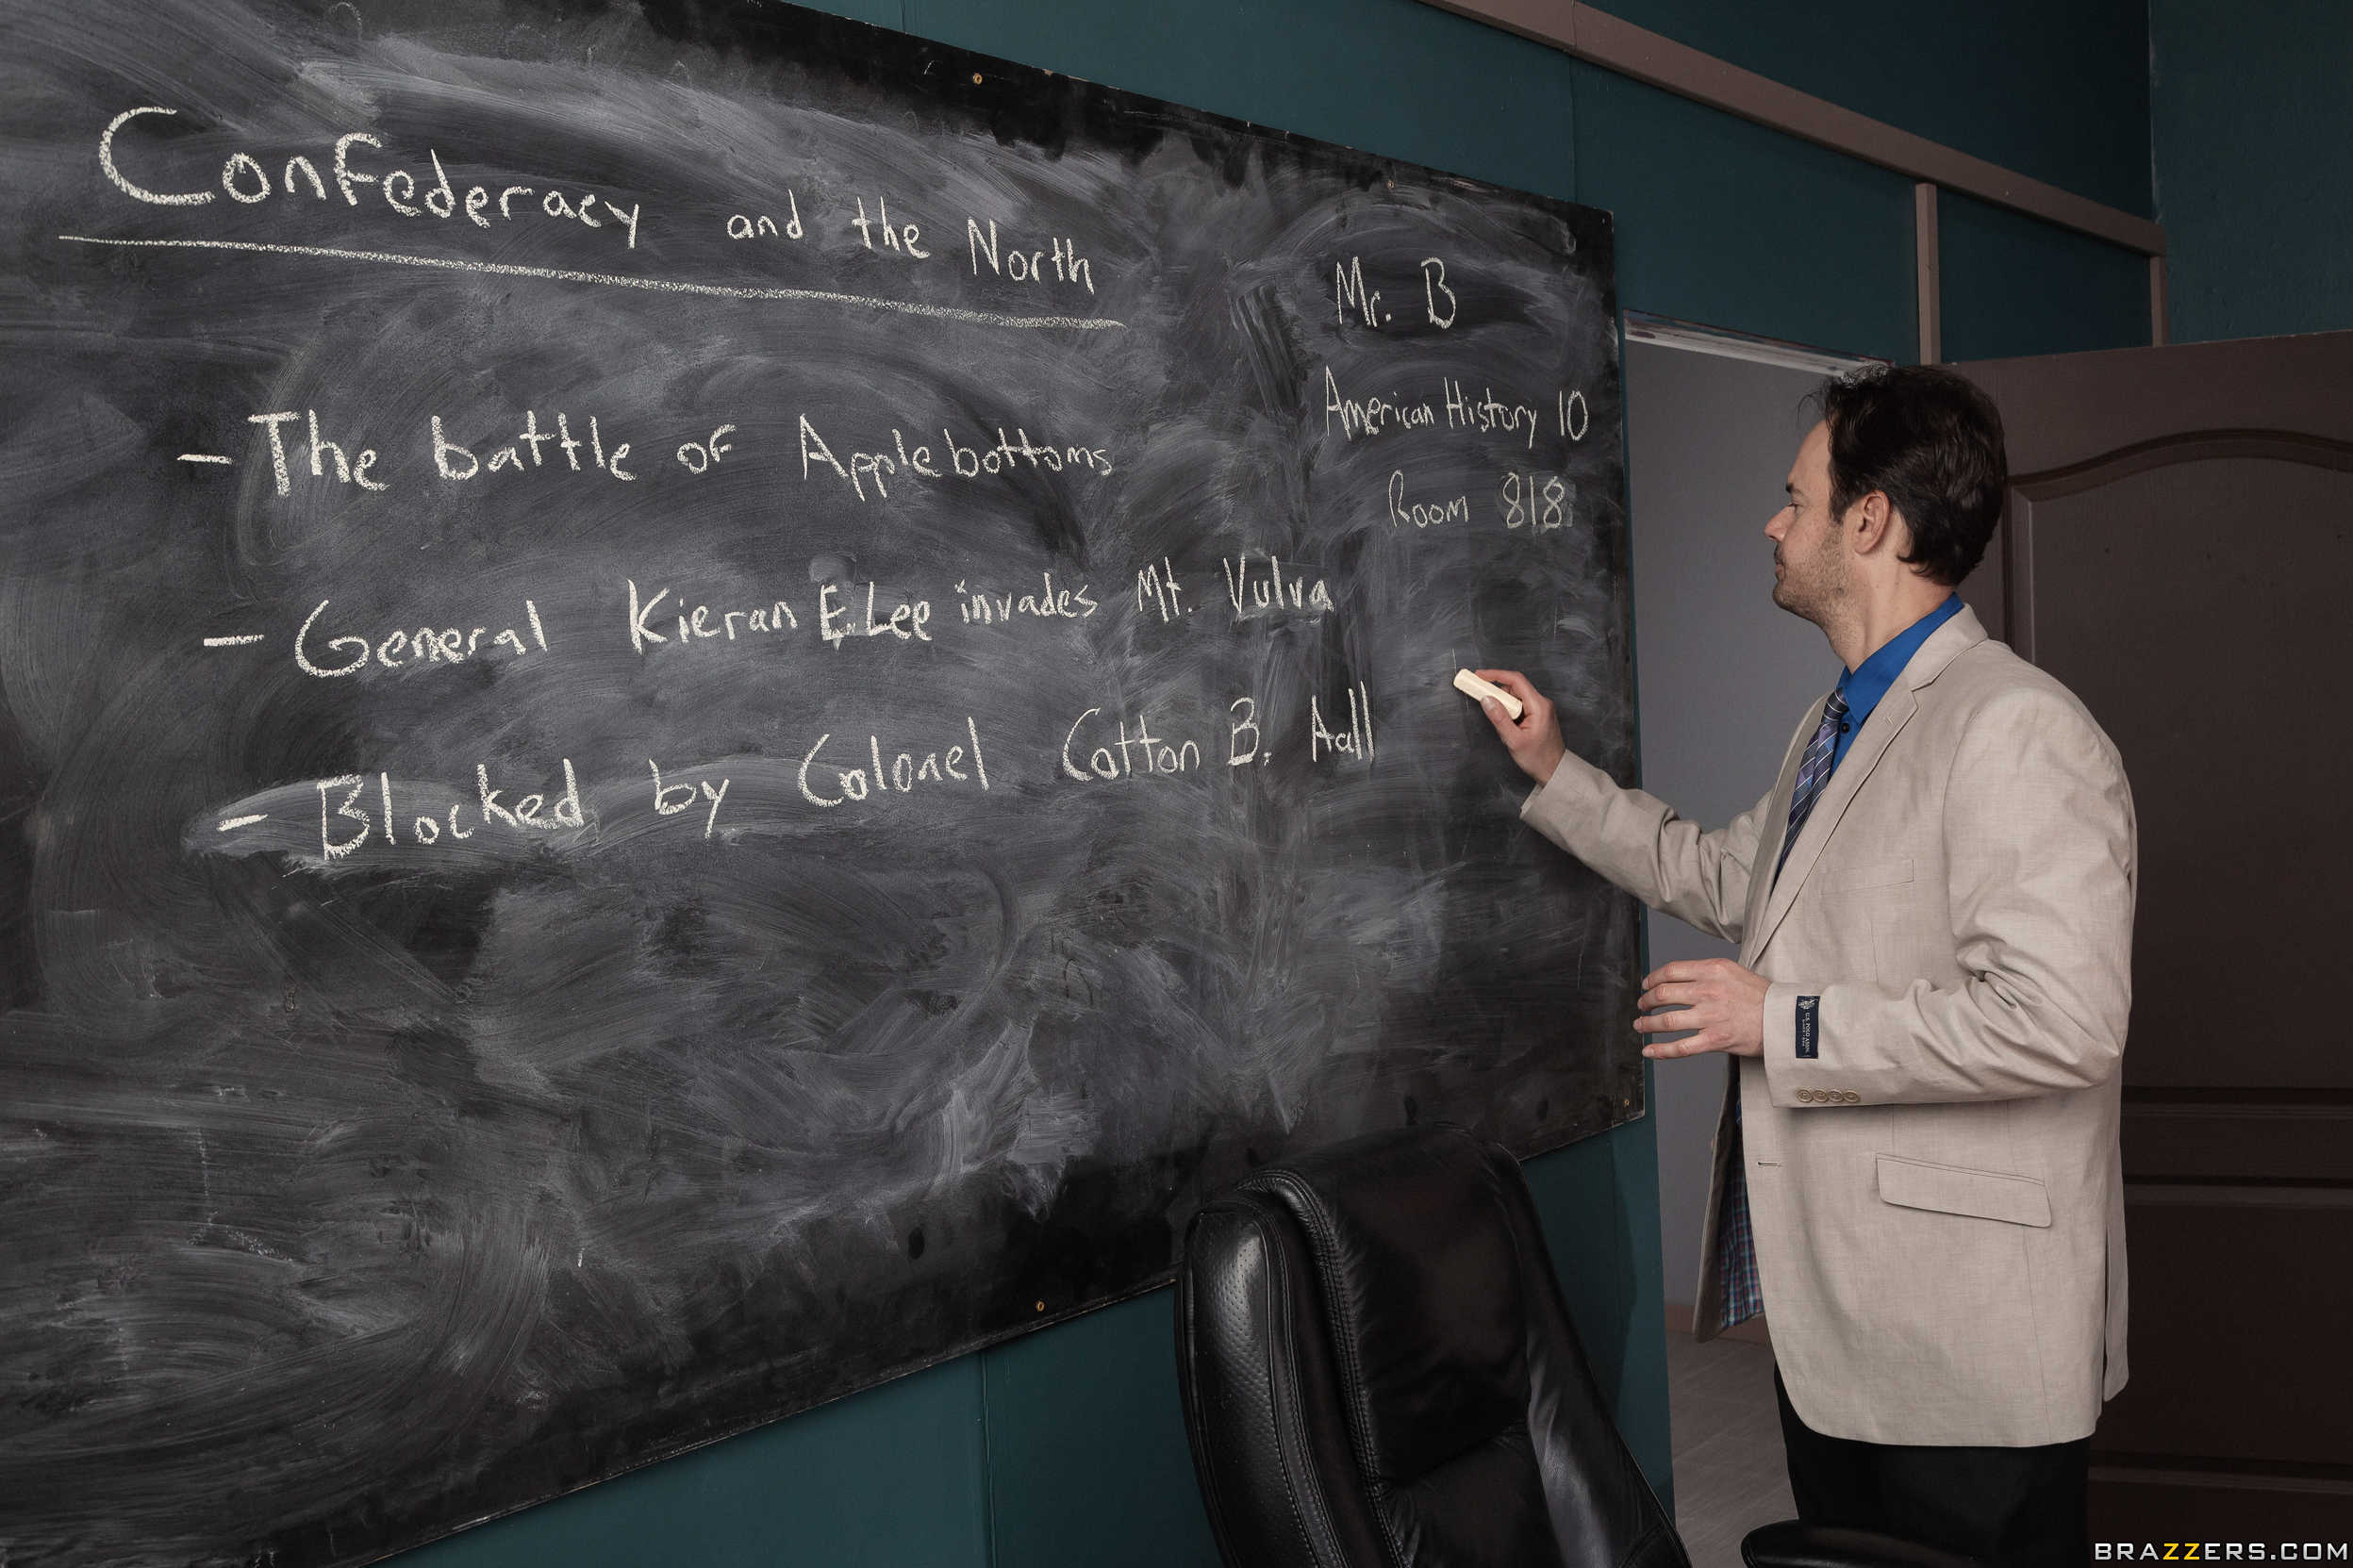 Confederacy and the North
- The battle of Applebottoms
- General Kieran E. Lee invades Mt. Vulva
- Blocked by Colonel Cotton B. Aall
Mr. B
American History 10
Room 818
U.S. POLO ASSN.
BRAZZERS.COM